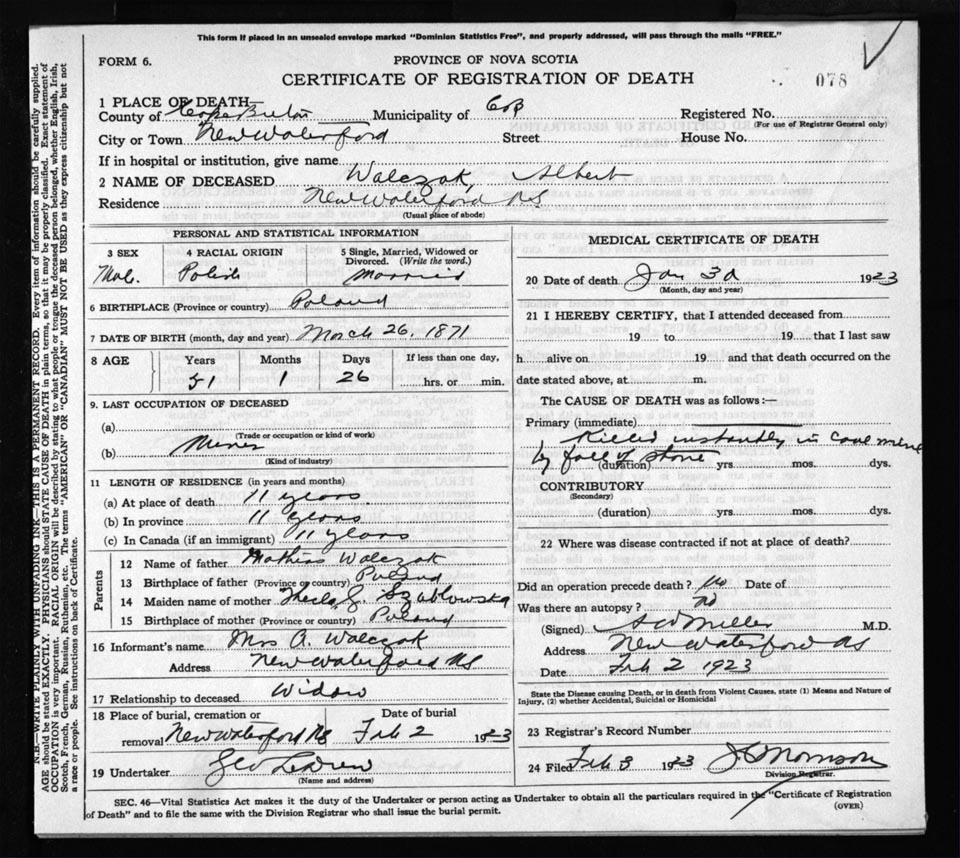 This form if placed in an unsealed envelope marked "Dominion Statistics Free", and properly addressed, will pass through the mails "FREE."
FORM 6.
PROVINCE OF NOVA SCOTIA
CERTIFICATE OF REGISTRATION OF DEATH
078
1 PLACE OF DEATH
County of Cape Breton Municipality of C B Registered No.
(For use of Registrar General only)
City or Town New Waterford Street House No.
If in hospital or institution, give name
2 NAME OF DECEASED Walczak, Albert
Residence New Waterford NS
(Usual place of abode)
PERSONAL AND STATISTICAL INFORMATION
3 SEX 4 RACIAL ORIGIN 5 Single, Married, Widowed or Divorced. (Write the word.)
Mal. Polish Married
6 BIRTHPLACE (Province or country) Poland
7 DATE OF BIRTH (month, day and year) March 26, 1871
8 AGE Years Months Days If less than one day,
51 1 26 hrs. or min.
9. LAST OCCUPATION OF DECEASED
(a)
(Trade or occupation or kind of work)
(b) Miner
(Kind of industry)
11 LENGTH OF RESIDENCE (in years and months)
(a) At place of death 11 years
(b) In province 11 years
(c) In Canada (if an immigrant) 11 years
Parents
12 Name of father Mathias Walczak
13 Birthplace of father (Province or country) Poland
14 Maiden name of mother Szablowska
15 Birthplace of mother (Province or country) Poland
16 Informant's name Mrs A. Walczak
Address New Waterford NS
17 Relationship to deceased Widow
18 Place of burial, cremation or removal New Waterford NS Date of burial Feb 2 1923
19 Undertaker Geo
(Name and address)
MEDICAL CERTIFICATE OF DEATH
20 Date of death Jan 30 1923
(Month, day and year)
21 I HEREBY CERTIFY, that I attended deceased from
19 to 19 that I last saw
h alive on 19 and that death occurred on the
date stated above, at m.
The CAUSE OF DEATH was as follows:—
Primary (immediate)
Killed instantly in coal mine
by fall of stone
(duration) yrs. mos. dys.
CONTRIBUTORY
(Secondary)
(duration) yrs. mos. dys.
22 Where was disease contracted if not at place of death?
Did an operation precede death? No Date of
Was there an autopsy? no
(Signed) Miller M.D.
Address New Waterford NS
Date Feb 2 1923
State the Disease causing Death, or in death from Violent Causes, state (1) Means and Nature of
Injury, (2) whether Accidental, Suicidal or Homicidal
23 Registrar's Record Number
24 Filed Feb 3 1923 Morrison
Division Registrar.
SEC. 46—Vital Statistics Act makes it the duty of the Undertaker or person acting as Undertaker to obtain all the particulars required in the "Certificate of Registration
of Death" and to file the same with the Division Registrar who shall issue the burial permit.
(OVER)
N.B.—WRITE PLAINLY WITH UNFADING INK—THIS IS A PERMANENT RECORD. Every item of information should be carefully supplied.
AGE should be stated EXACTLY. PHYSICIANS should STATE CAUSE OF DEATH in plain terms, so that it may be properly classified. Exact statement of
OCCUPATION is very important. RACIAL ORIGIN will be described by stating to what people or tongue the deceased person belonged, whether English, Irish,
Scotch, French, German, Russian, Ruthenian, etc. The terms "AMERICAN" OR "CANADIAN" MUST NOT BE USED as they express citizenship but not
a race or people. See instructions on back of Certificate.